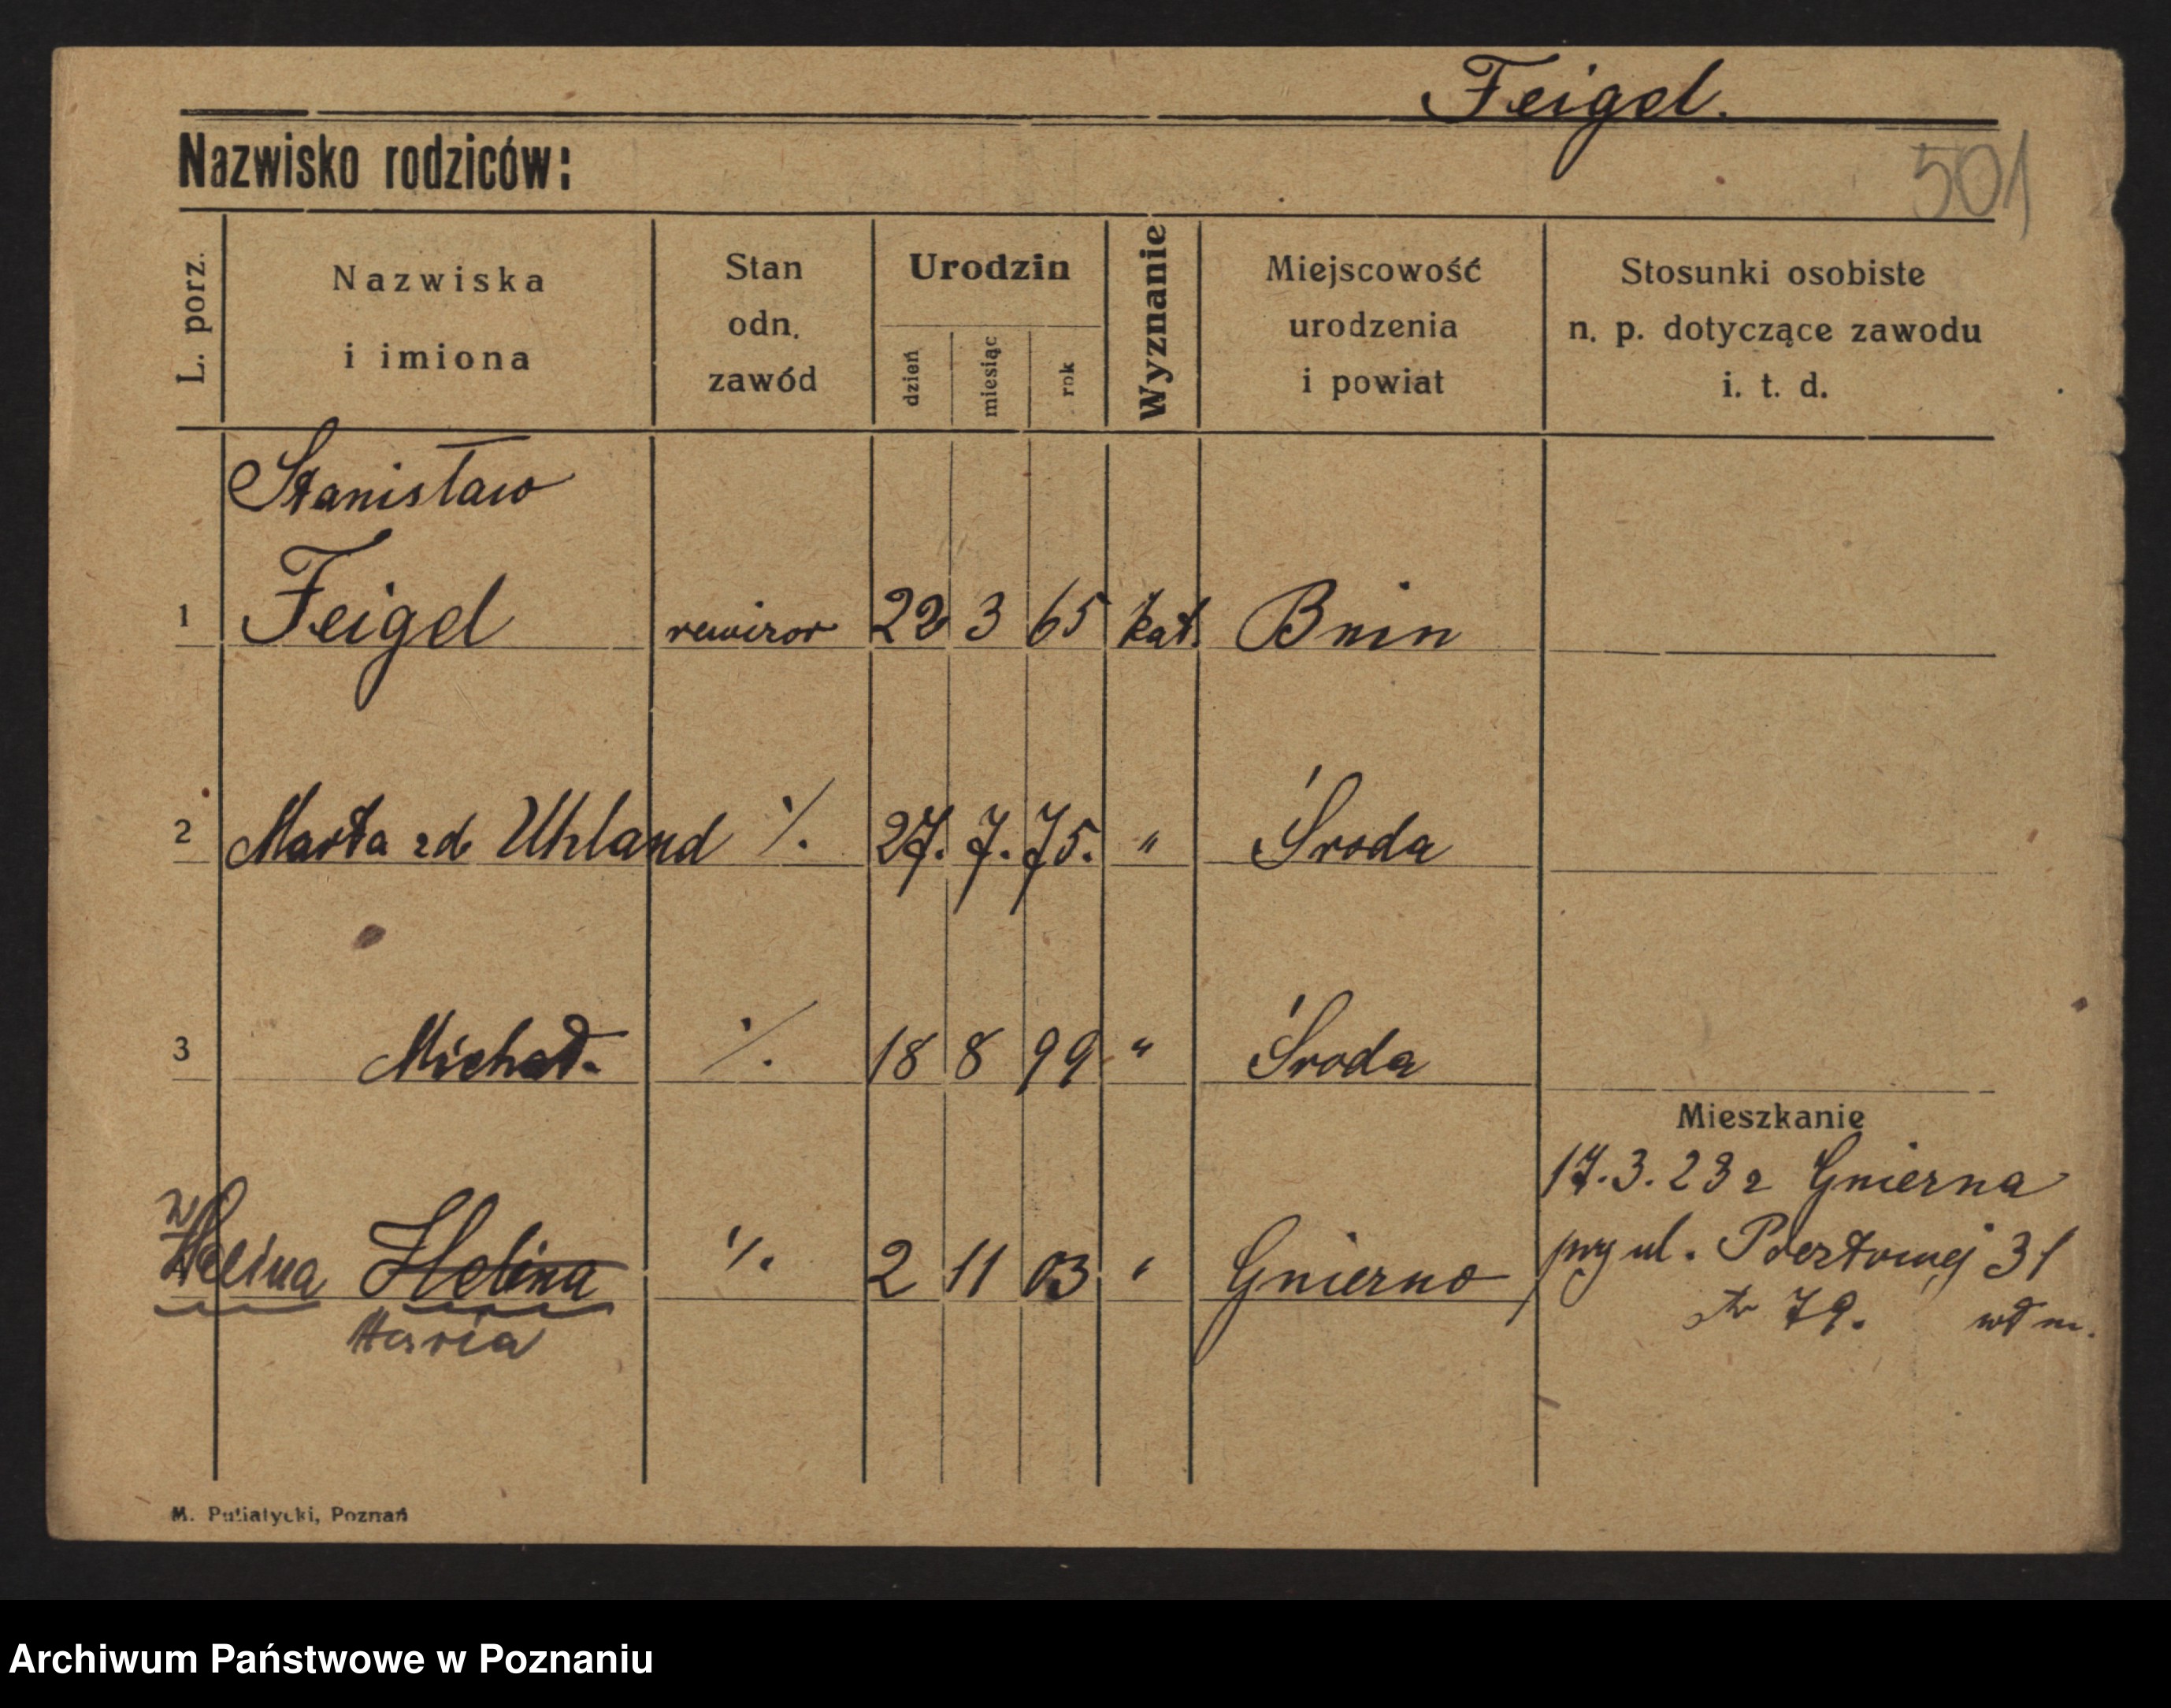 Feigel.
Nazwisko rodziców:
501
L. porz.
Nazwiska
i imiona
Stan
odn.
zawód
Urodzin
dzień
miesiąc
rok
Wyznanie
Miejscowość
urodzenia
i powiat
Stosunki osobiste
n. p. dotyczące zawodu
i. t. d.
Stanisław
1 Feigel rewizor 22 3 65 kat. Bnin
2 Marta zd Uhland ·/. 27. 7. 75. " Środa
3 Michał. ·/. 18 8 99 " Środa
Mieszkanie
17.3.23 z Gniezna
Helina Helina ·/. 2 11 03 " Gniezno
przy ul. Pocztowej 31
Maria
79.
M. Putiatycki, Poznań
Archiwum Państwowe w Poznaniu